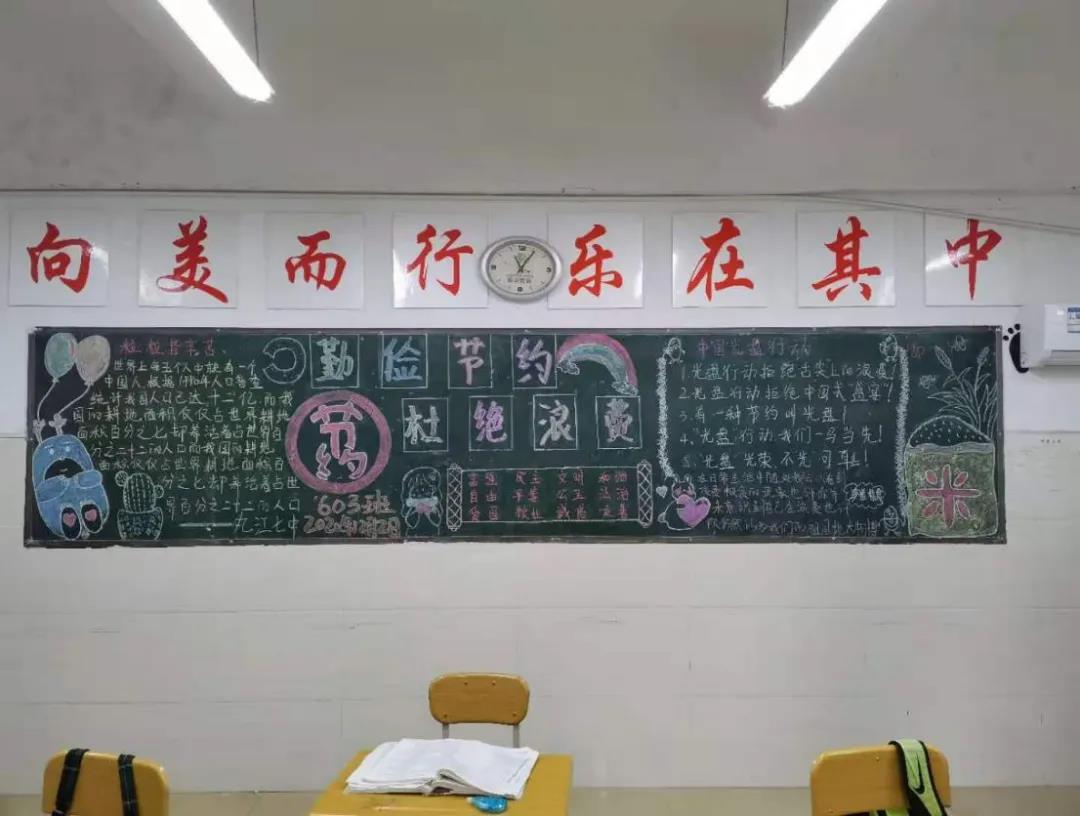 向美而行 乐在其中
粒粒皆辛苦
世界上每五个人中就有一个
中国人,根据1990年人口普查
统计我国人口已达十二亿,而我
国的耕地面积仅仅占世界耕地
面积百分之七却养活着占世界百
分之二十二的人口而我国的耕地
面积仅仅占世界耕地面积百
分之七却养活着占世
界百分之二十二的人口
九江七中
勤俭节约
杜绝浪费
节约
603班
富强 民主 文明 和谐
自由 平等 公正 法治
爱国 敬业 诚信 友善
中国光盘行动
1.光盘行动拒绝舌尖上的浪费!
2.光盘行动拒绝中国式"盛宴"!
3.有一种节约叫光盘!
4."光盘"行动我们一马当先!
5."光盘"光荣,不光可耻!
米